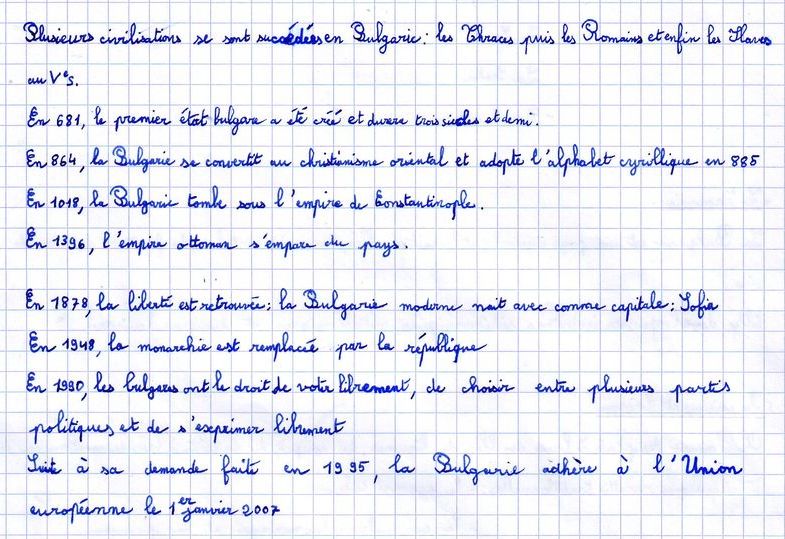 Plusieurs civilisations se sont succédées en Bulgarie : les Thraces puis les Romains et enfin les Slaves
au V es.
En 681, le premier état bulgare a été créé et durera trois siècles et demi.
En 864, la Bulgarie se convertit au christianisme oriental et adopte l'alphabet cyrillique en 885
En 1018, la Bulgarie tombe sous l'empire de Constantinople.
En 1396, l'empire ottoman s'empare du pays.
En 1878, la liberté est retrouvée : la Bulgarie moderne nait avec comme capitale : Sofia
En 1948, la monarchie est remplacée par la république
En 1990, les bulgares ont le droit de voter librement, de choisir entre plusieurs partis
politiques et de s'exprimer librement
Suite à sa demande faite en 1995, la Bulgarie adhère à l'Union
européenne le 1er janvier 2007